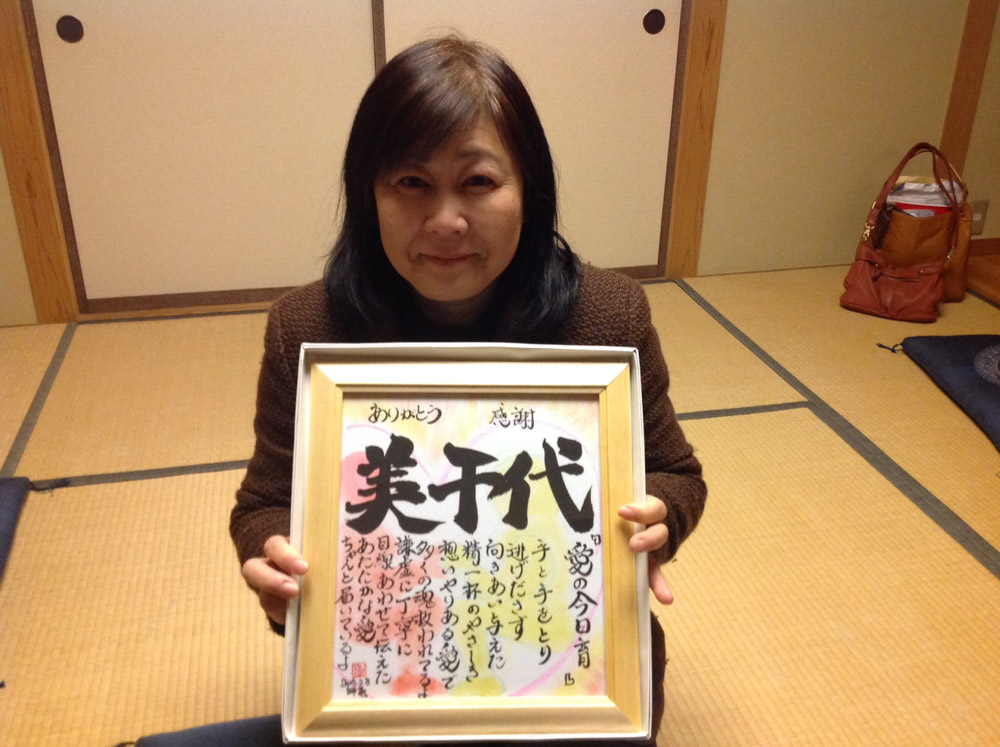 ありがとう 感謝
美千代
『愛の今日育』
手と手をとり
逃げださず
向きあい与えた
精一杯のやさしさ
想いやりある愛で
多くの魂救われてるよ
謙虚に丁寧に
目線あわせて伝えた
あたたかな愛
ちゃんと届いているよ